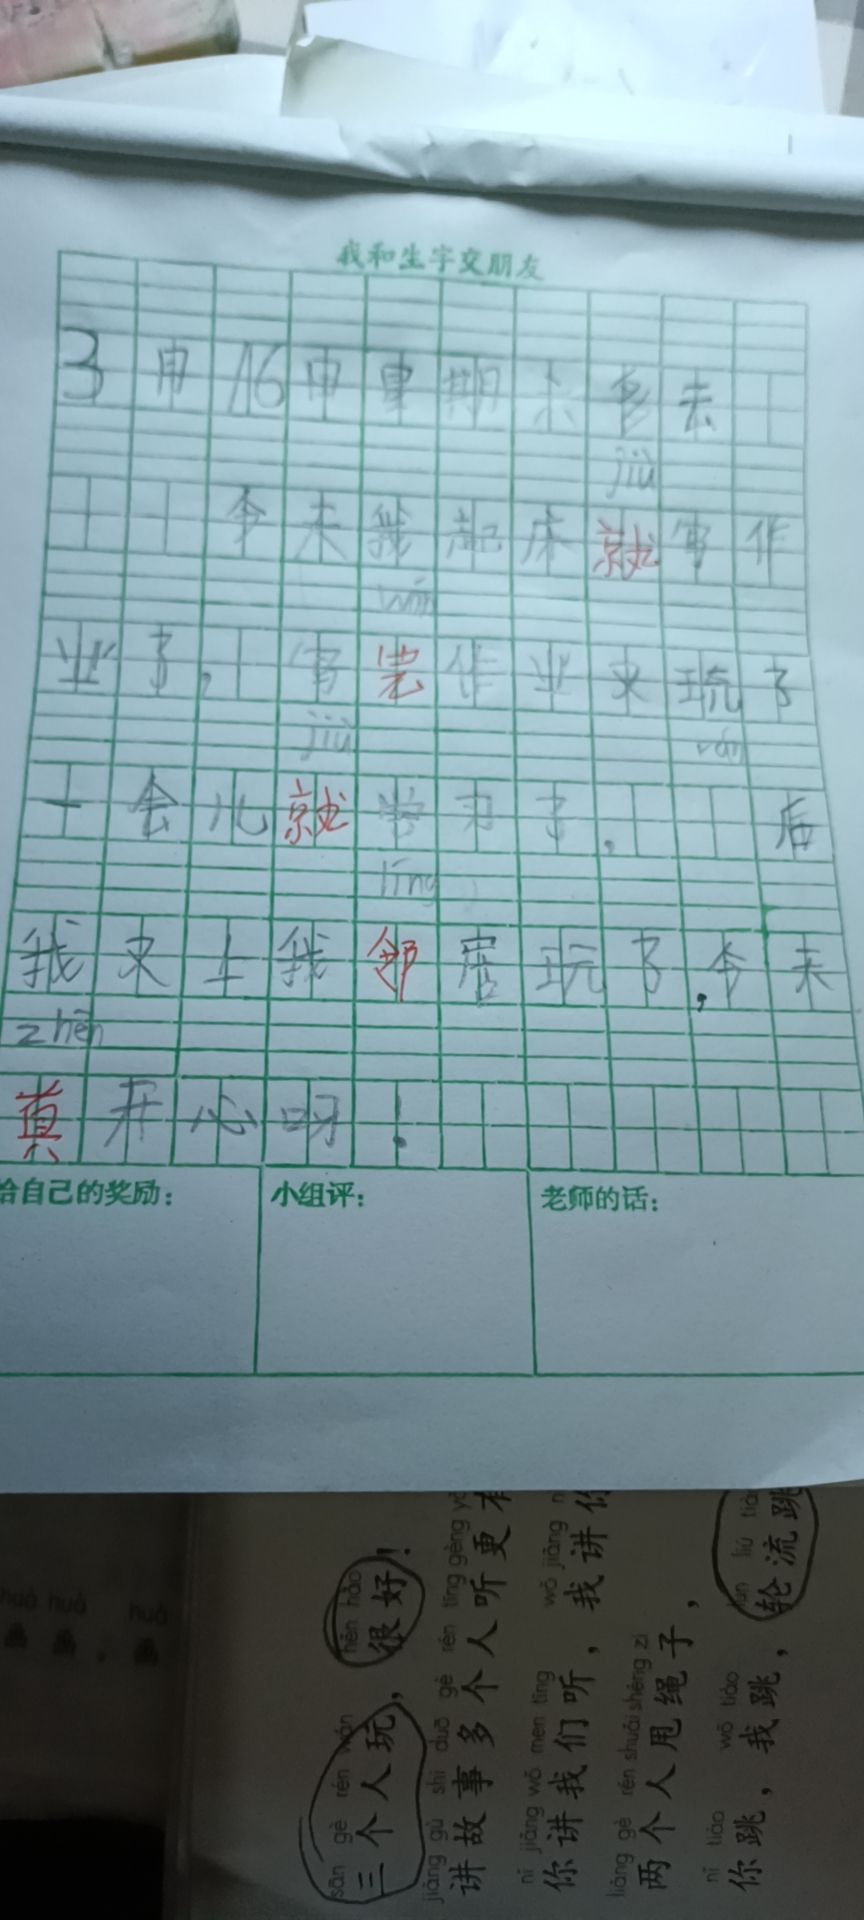 我和生字交朋友
3 申 16 申 星 期 去
jiù
今 未 我 起 床 就 写 作
wán
业 了， 写 完 作 业 来 玩 了
jiù
一 会 儿 就 学 习 了， 后
líng
我 来 上 我 邻 居 玩 了，今 未
zhēn
真 开 心 呀！
给自己的奖励：
小组评：
老师的话：
sān gè rén wán hěn hǎo
三个人玩，很好！
jiǎng gù shi duō gè rén tīng gèng yǒ
讲故事多个人听更有
nǐ jiǎng wǒ men tīng wǒ jiǎng n
你讲我们听，我讲你
liǎng gè rén shuǎi shéng zi
两个人甩绳子，
nǐ tiào wǒ tiào lún liú tiào
你跳，我跳，轮流跳